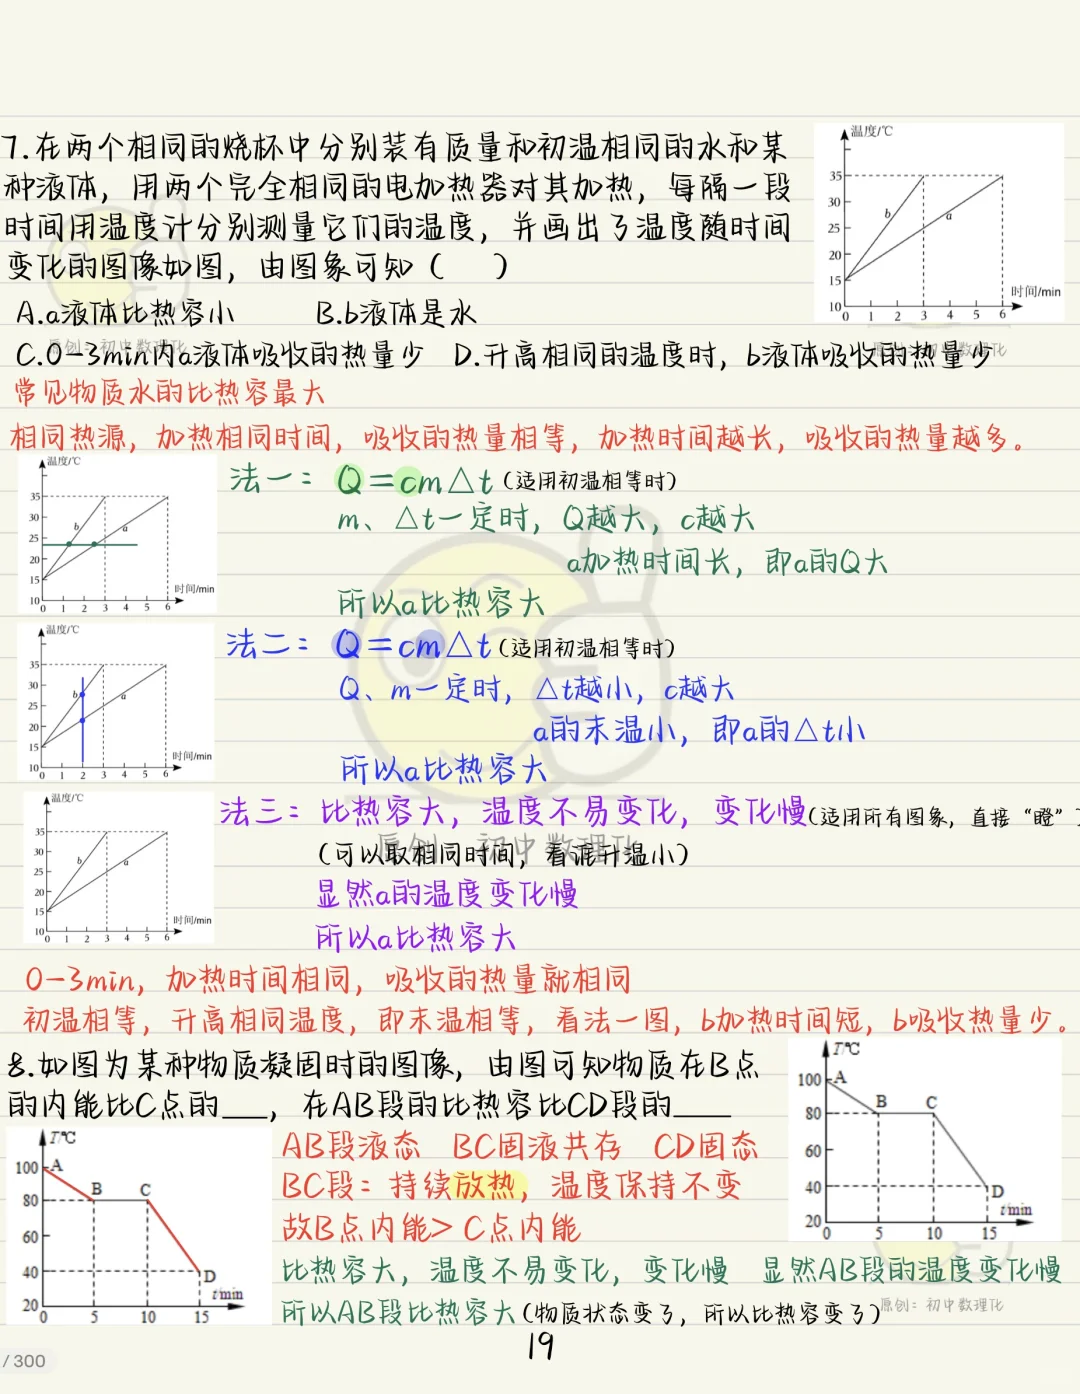 7.在两个相同的烧杯中分别装有质量和初温相同的水和某
种液体，用两个完全相同的电加热器对其加热，每隔一段
时间用温度计分别测量它们的温度，并画出了温度随时间
变化的图像如图，由图象可知（　　）
温度/℃
35
30
25
20
15
10
b
a
时间/min
0 1 2 3 4 5 6
A.a液体比热容小　　B.b液体是水
C.0-3min内a液体吸收的热量少　D.升高相同的温度时，b液体吸收的热量少
原创：初中数理化
原创：初中数理化
常见物质水的比热容最大
相同热源，加热相同时间，吸收的热量相等，加热时间越长，吸收的热量越多。
温度/℃
35
30
25
20
15
10
b
a
时间/min
0 1 2 3 4 5 6
法一：Q=cm△t(适用初温相等时)
m、△t一定时，Q越大，c越大
a加热时间长，即a的Q大
所以a比热容大
温度/℃
35
30
25
20
15
10
b
a
时间/min
0 1 2 3 4 5 6
法二：Q=cm△t(适用初温相等时)
Q、m一定时，△t越小，c越大
a的末温小，即a的△t小
所以a比热容大
温度/℃
35
30
25
20
15
10
b
a
时间/min
0 1 2 3 4 5 6
法三：比热容大，温度不易变化，变化慢(适用所有图象，直接“瞪”)
(可以取相同时间，看谁升温小)
原创：初中数理化
显然a的温度变化慢
所以a比热容大
0-3min，加热时间相同，吸收的热量就相同
初温相等，升高相同温度，即末温相等，看法一图，b加热时间短，b吸收热量少。
8.如图为某种物质凝固时的图像，由图可知物质在B点
的内能比C点的___，在AB段的比热容比CD段的____
T/℃
100
80
60
40
20
A
B
C
D
t/min
0 5 10 15
T/℃
100
80
60
40
20
A
B
C
D
t/min
0 5 10 15
AB段液态　BC固液共存　CD固态
BC段：持续放热，温度保持不变
故B点内能>C点内能
比热容大，温度不易变化，变化慢　显然AB段的温度变化慢
所以AB段比热容大(物质状态变了，所以比热容变了)
原创：初中数理化
19
/ 300